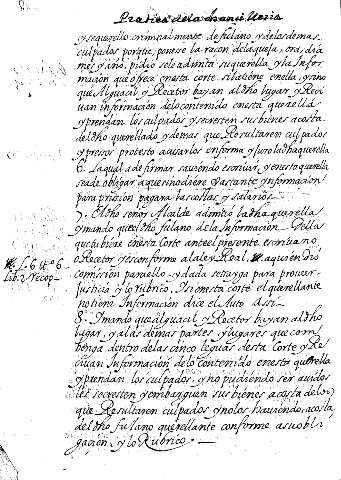 Pratica de la chancilleria
y se querello criminalmente de fulano y de las demas
culpados porque, ponese la raçon de la quexa, ora, dia
mes y año, pidio se le admita su querella, y la Infor
macion que ofrece en esta corte si la tiene en ella, y sino
que Alguacil y Recetor bayan al dho lugar y Reci
uan informacion de lo contenido en esta querella
y prendan los culpados y secresten sus bienes a costa
del dho querellado y demas que Resultaren culpados
y presos protesto acusarlos en forma y juro la dha querella
6. La qual a de firmar sauiendo escriuir, y en esta querella
se a de obligar a que si no diere bastante ynformacion
para prision pagara las costas y salarios.
7. El dho señor Alcalde admitio la dha querella
y mando que el dho fulano de la Informacion della
que si biene en esta Corte ante el presente escriuano
Recetor y es conforme a la ley Real. aqui en Dio
comission para ello y dada se trayga para proueer
justicia y lo rubrico. Si en esta corte el querellante
no tiene Informacion dice el Auto Assi.
L. 6. tt.o 6
Lib. 2 recop.
8. I mando que alguacil y Recetor bayan al dho
lugar, y a las demas partes y lugares que com
benga dentro de las cinco leguas desta Corte y Re
ciuan Informacion de lo contenido en esta querella
y prendan los culpados, y no pudiendo ser auidos
les secresten y embarguen sus bienes a costa de los
que Resultaren culpados y no los hauiendo, a costa
del dho fulano querellante conforme a su obli
gacion, y lo Rubrico.